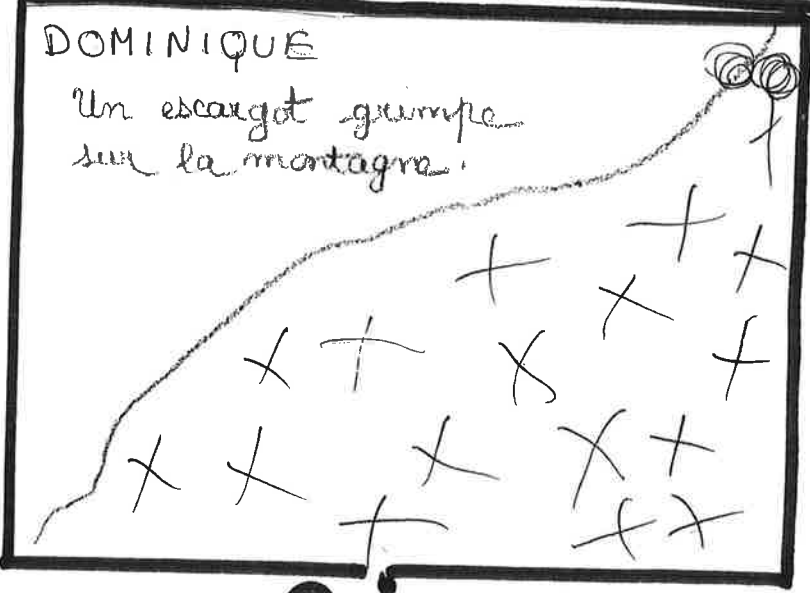 DOMINIQUE
Un escargot grimpe
sur la montagne.